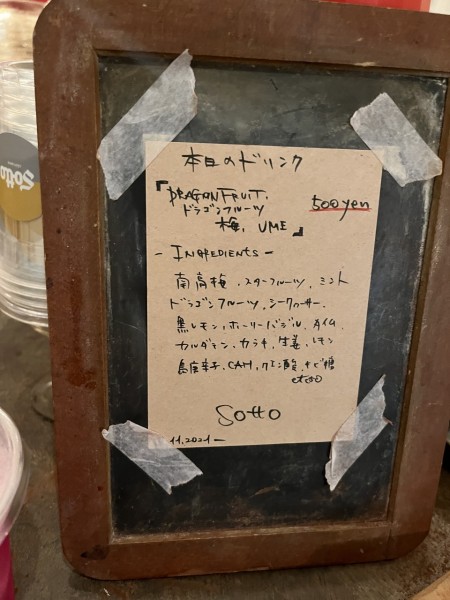 本日のドリンク
「DRAGON FRUIT,
ドラゴンフルーツ
梅, UME」
500yen
- INGREDIENTS -
南高梅, スターフルーツ, ミント
ドラゴンフルーツ, シークヮーサー,
黒レモン, ホーリーバジル, タイム,
カルダモン, カラキ, 生姜, レモン
島唐辛子, クエン酸, キビ糖
etc
Sotto
11.2021 -
Sotto